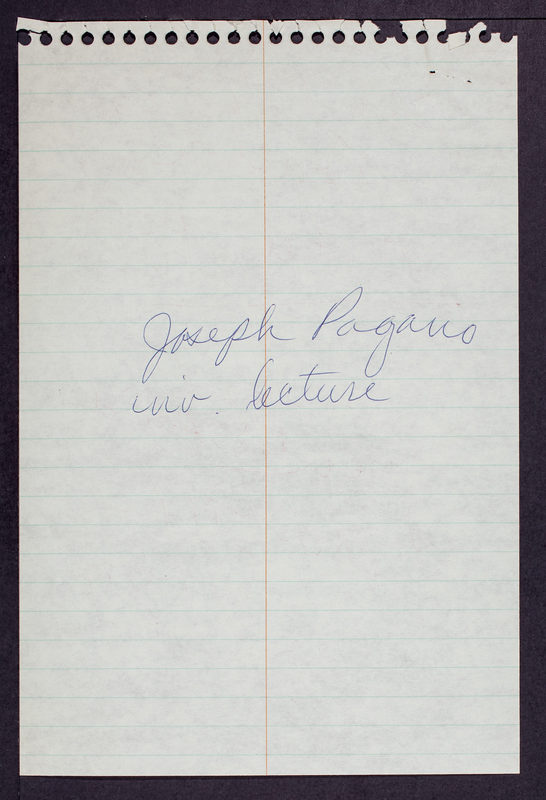 Joseph Pagano
inv. lecture